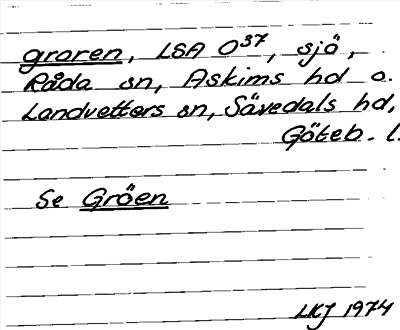 groren, LSA O³⁷, sjö,
Råda sn, Askims hd o.
Landvetters sn, Sävedals hd,
Göteb. l.
Se Gröen
LKJ 1974